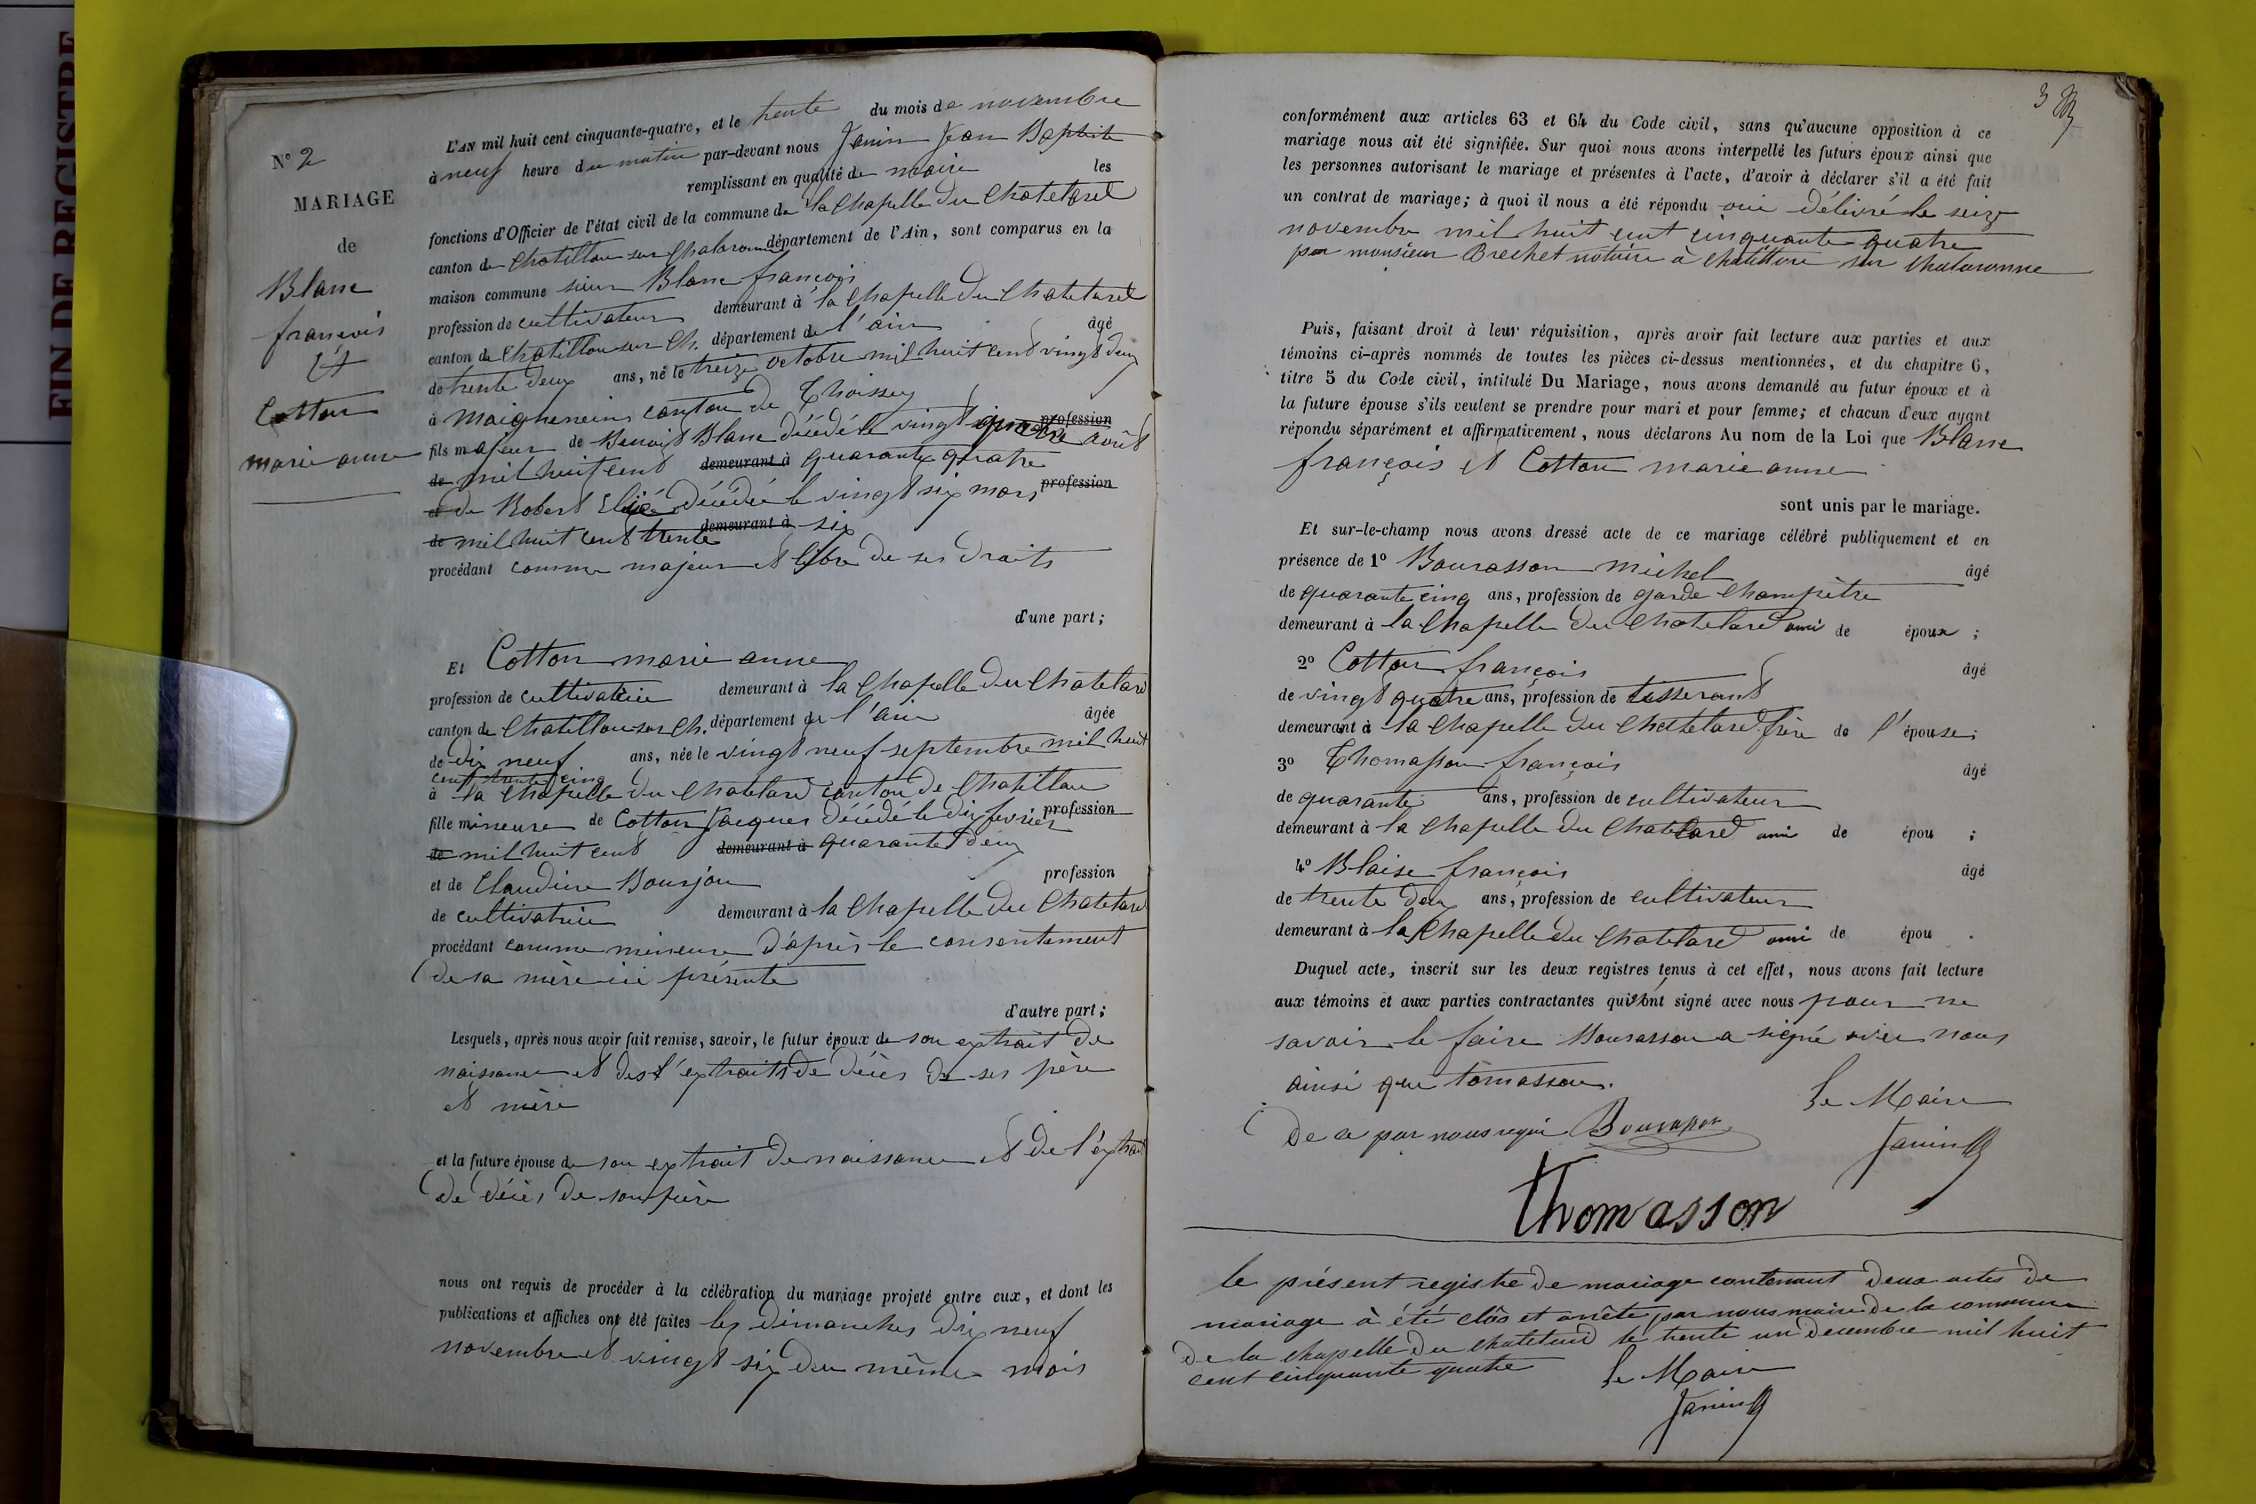 FIN DE REGISTRE
N° 2
MARIAGE
de
Blanc
françois
Et
Cotton
marie anne
L'AN mil huit cent cinquante-quatre, et le trente du mois de novembre
à neuf heure du matin par-devant nous Janin Jean Baptiste
remplissant en qualité de maire les
fonctions d'Officier de l'état civil de la commune de la chapelle du Chatelard
canton de chatillon sur chalaronne département de l'Ain, sont comparus en la
maison commune sieur Blanc françois
profession de cultivateur demeurant à la chapelle du Chatelard
canton de Chatillon sur Ch. département de l'ain âgé
de trente deux ans, né le treize octobre mil huit cent vingt deux
à canton de Thoissey
fils majeur de Benoit Blanc décédé le vingt quatre août profession
de mil huit cent demeurant à quarante quatre
et de Robert décédée le vingt six mars profession
de mil huit cent trente demeurant à six
procédant comme majeur et libre de ses droits
d'une part;
Et Cotton marie anne
profession de cultivatrice demeurant à la chapelle du chatelard
canton de Chatillon sur Ch. département de l'ain âgée
de dix neuf ans, née le vingt neuf septembre mil huit
cent trente cinq
à la chapelle du chatelard canton de chatillon
fille mineure de Cotton Jacques décédé le dix fevrier profession
de mil huit cent demeurant à quarante deux
et de Claudine Bourjon profession
de cultivatrice demeurant à la chapelle du Chatelard
procédant comme mineure d'après le consentement
de sa mère ici présente
d'autre part;
Lesquels, après nous avoir fait remise, savoir, le futur époux de son extrait de
naissance et des extraits de décès de ses père
et mère
et la future épouse de son extrait de naissance et de l'extrait
de décès de son père
nous ont requis de procéder à la célébration du mariage projeté entre eux, et dont les
publications et affiches ont été faites les dimanches dix neuf
novembre et vingt six du même mois
3
conformément aux articles 63 et 64 du Code civil, sans qu'aucune opposition à ce
mariage nous ait été signifiée. Sur quoi nous avons interpellé les futurs époux ainsi que
les personnes autorisant le mariage et présentes à l'acte, d'avoir à déclarer s'il a été fait
un contrat de mariage; à quoi il nous a été répondu oui délivré le seize
novembre mil huit cent cinquante quatre
par monsieur Brechet notaire à chatillon sur chalaronne
Puis, faisant droit à leur réquisition, après avoir fait lecture aux parties et aux
témoins ci-après nommés de toutes les pièces ci-dessus mentionnées, et du chapitre 6,
titre 5 du Code civil, intitulé Du Mariage, nous avons demandé au futur époux et à
la future épouse s'ils veulent se prendre pour mari et pour femme; et chacun d'eux ayant
répondu séparément et affirmativement, nous déclarons Au nom de la Loi que Blanc
françois et Cotton marie anne
sont unis par le mariage.
Et sur-le-champ nous avons dressé acte de ce mariage célébré publiquement et en
présence de 1° Bourasson michel âgé
de quarante cinq ans, profession de garde champêtre
demeurant à la chapelle du chatelard ami de époux ;
2° Cotton françois âgé
de vingt quatre ans, profession de tisserant
demeurant à la chapelle du chatelard frère de l'épouse;
3° Thomasson françois âgé
de quarante ans, profession de cultivateur
demeurant à la chapelle du Chatelard ami de épou ;
4° Blaise françois âgé
de trente deux ans, profession de cultivateur
demeurant à la chapelle du chatelard ami de épou .
Duquel acte, inscrit sur les deux registres tenus à cet effet, nous avons fait lecture
aux témoins et aux parties contractantes qui n'ont signé avec nous pour ne
savoir le faire Bourasson a signé avec nous
ainsi que tomasson.
De ce par nous requi Bourasson Le Maire
Janin
thomasson
le présent registre de mariage contenant deux actes de
mariage à été clôs et arrêté par nous maire de la commune
de la chapelle du chatelard le trente un decembre mil huit
cent cinquante quatre Le Maire
Janin